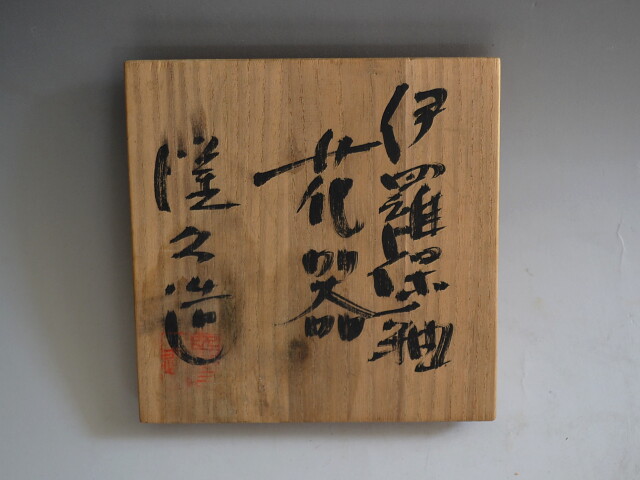 伊羅保釉
花器
久造